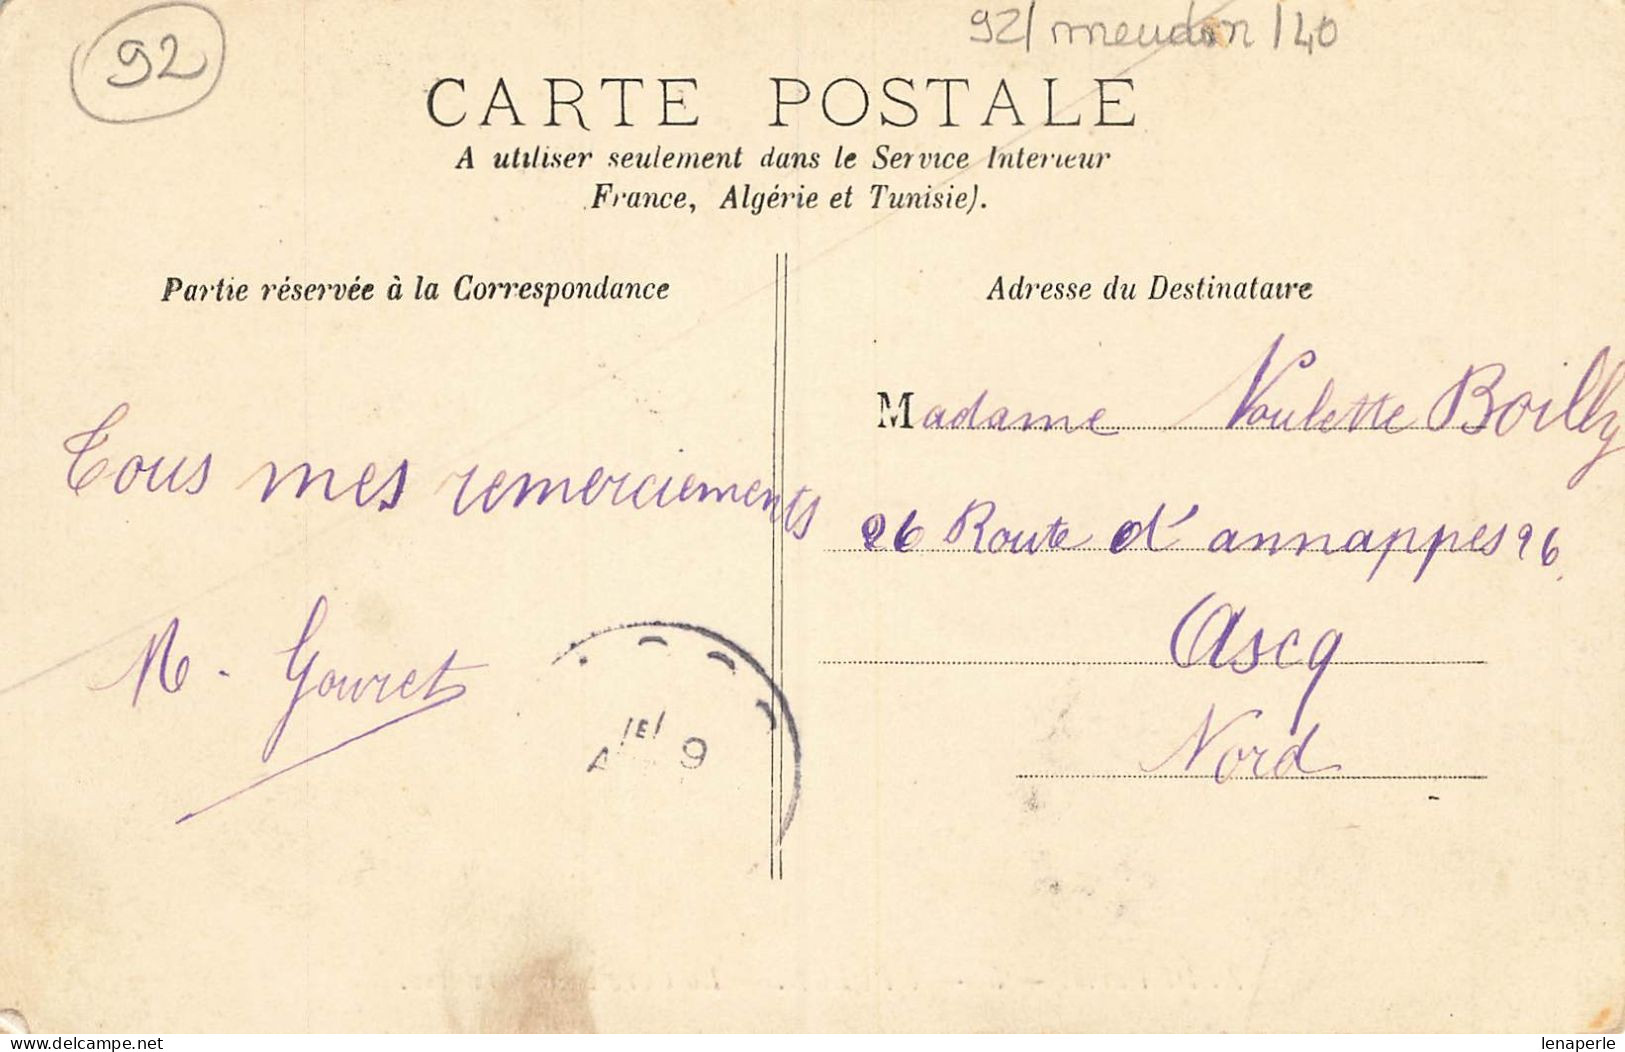 92
92/ meudon /40
CARTE POSTALE
A utiliser seulement dans le Service Interieur
France, Algérie et Tunisie).
Partie réservée à la Correspondance
Adresse du Destinataire
Madame Voulette Boilly
Tous mes remerciements
26 Route d'annappes 26
Ascq
Nord
M. Gouret
www.delcampe.net
lenaperle